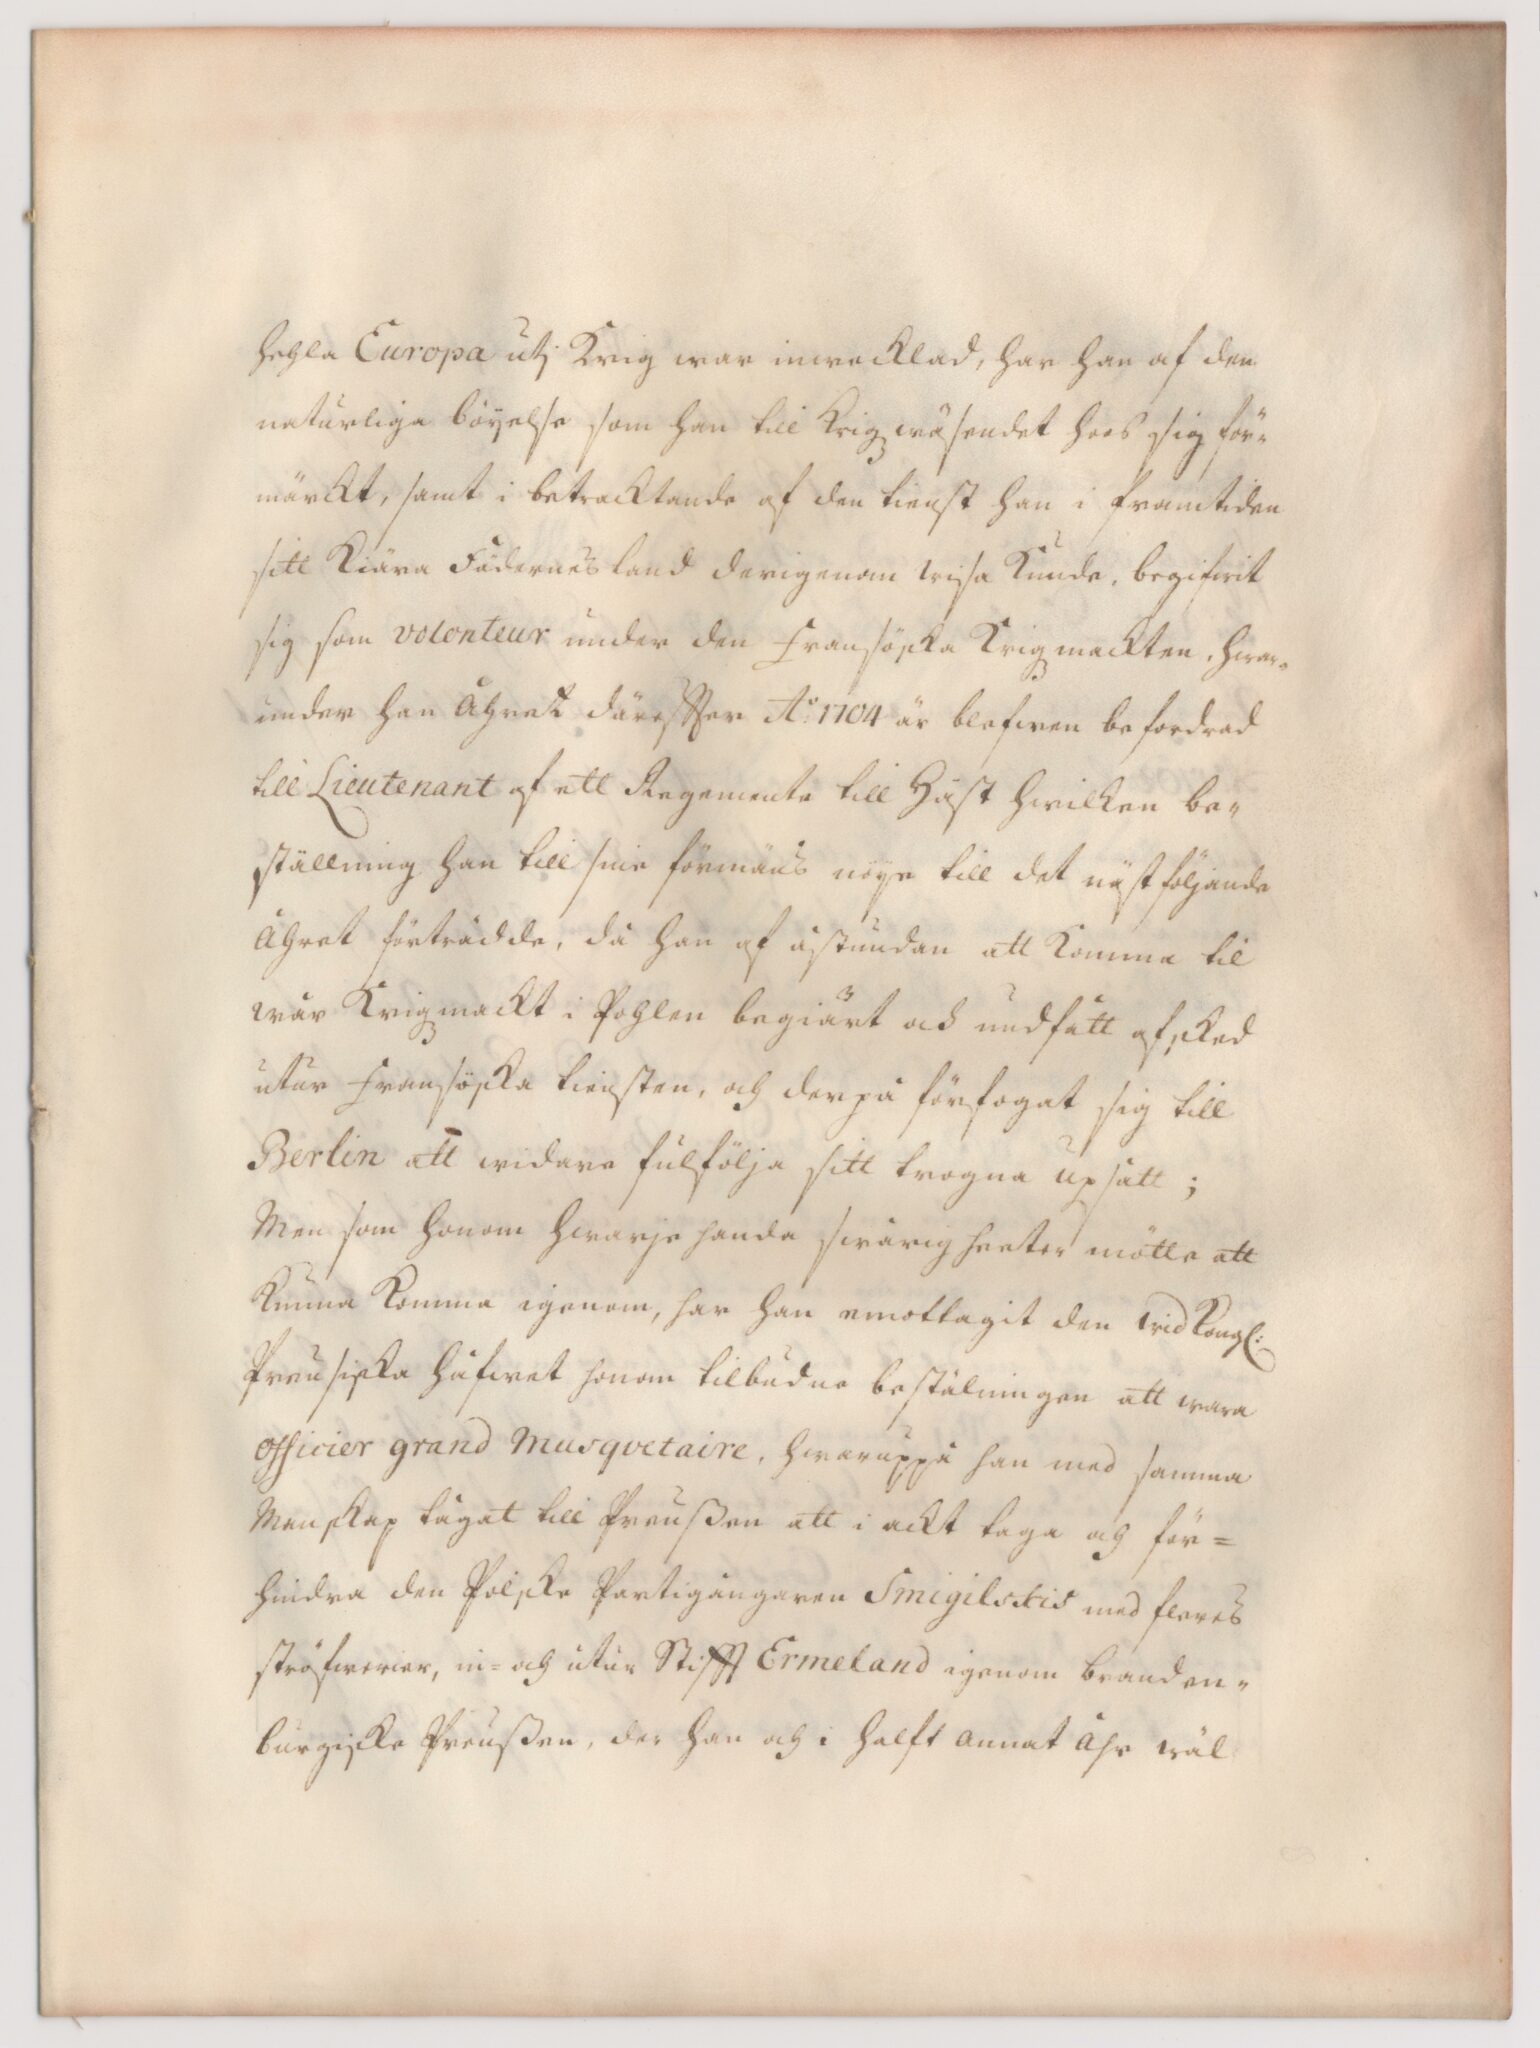 hehla Europa utj Krig war inwecklad, har han af den
naturliga böyelse som han till Krigzwäsendet hoos sig för-
märckt, samt i betracktande af den tienst han i framtiden
sitt Kiära Fädernesland derigenom wisa Kunde, begifwit
sig som volonteur under den Fransöska Krigzmackten, hwar-
under han Åhret däreffter Ao: 1704 är blefwen befordrad
till Lieutenant af ett Regemente till Häst hwilken be-
ställning han till sine förmäns nöye till det nästföljande
Åhret förträdde, då han af åstundan att Komma til
wår Krigzmackt i Pohlen begiärt och undfått afsked
utur Fransöska tiensten, och derpå förfogat sig till
Berlin att widare fulfölja sitt trogna upsått;
Men som honom hwarjehanda swårigheeter mötte att
Kunna Komma igenom, har han emottagit den wid Kongl:
Preusiska håfwet honom tilbudne bestälningen att wara
officier grand Musqvetaire, hwaruppå han med samma
Manskap tågat till Preußen att i ackt taga och för=
hindra den Polske Partigångaren Smigilskis med fleres
ströfwerier, in= och utur Stifft Ermeland igenom branden-
burgiske Preußen, der han och i halft annat Åhr wäl